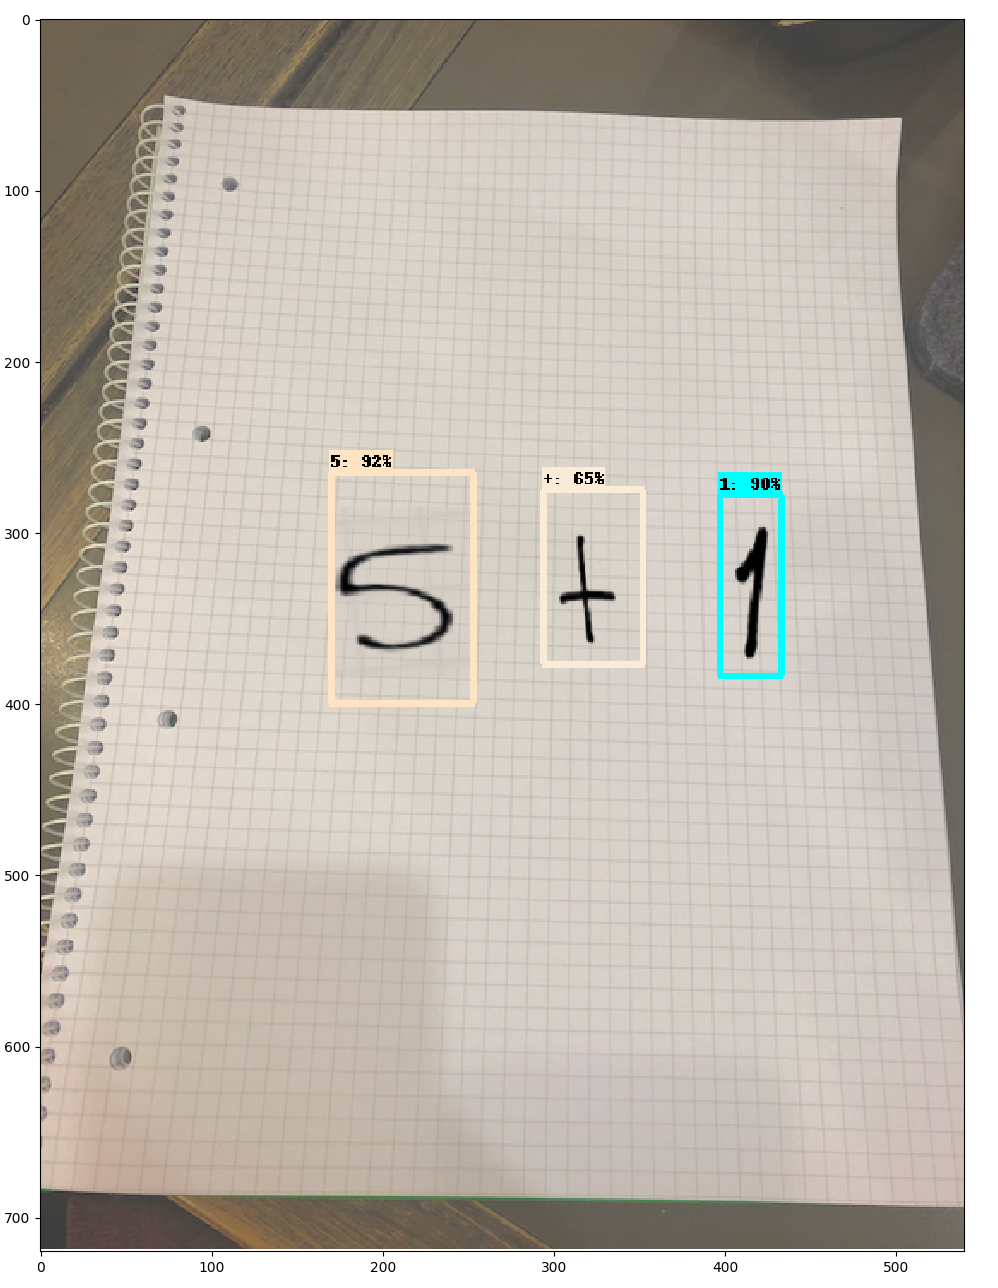 0
100
200
300
400
500
600
700
5: 92%
+: 65%
1: 90%
5 + 1
0 100 200 300 400 500